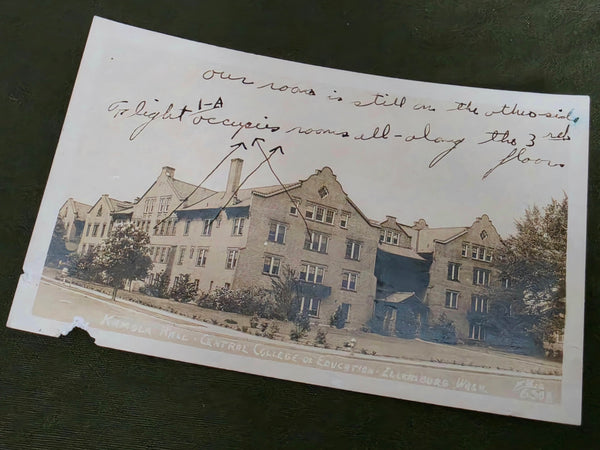 our room is still on the other side
Flight 1-A occupies rooms all-along the 3rd
floor
KAMOLA HALL - CENTRAL COLLEGE OF EDUCATION - ELLENSBURG WASH.